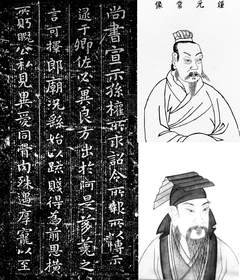 鍾元常像
尚書宣示孫權所求詔令所報所以博示
逮于卿佐必冀良方出於阿是芻蕘之
言可擇郎廟況繇始以疏賤得為前恩橫
所盱睨公私見異愛同骨肉殊遇厚寵以至